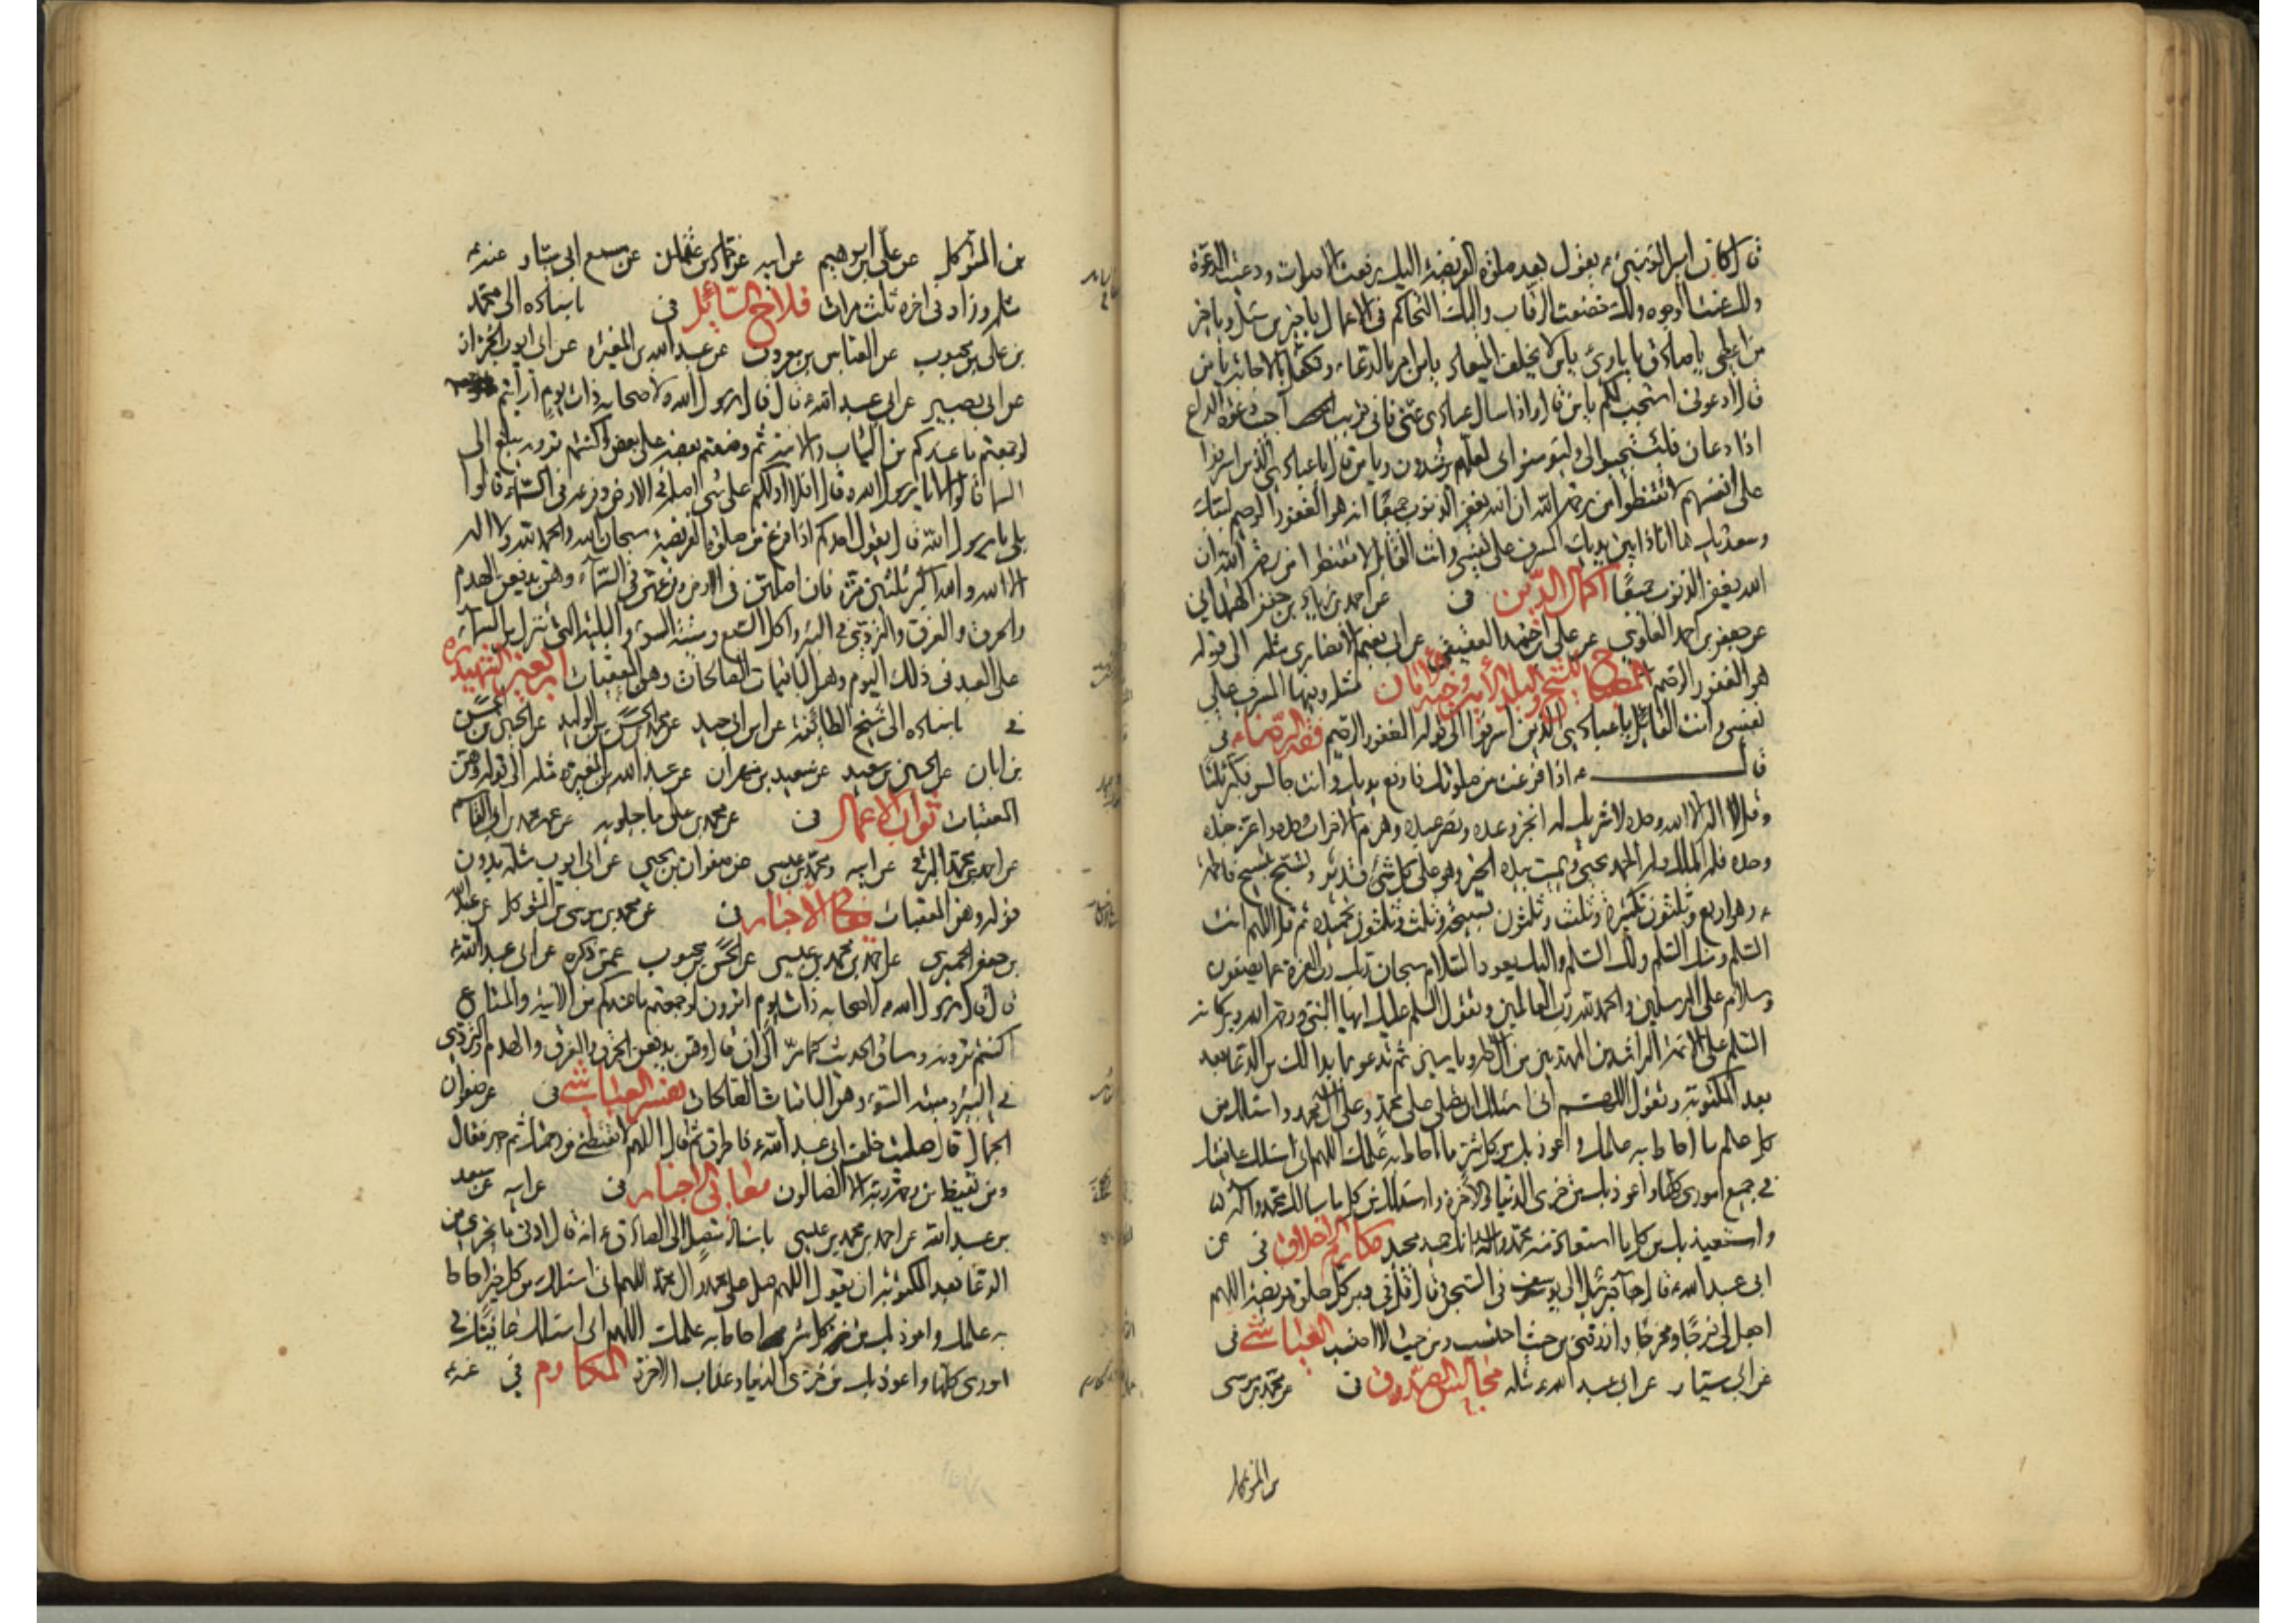 قال كان امير المؤمنين ع يقول بعد صلوة الفريضة اليك رفعت الاصوات ودعيت الدعوة
ولك عنت الوجوه ولك خضعت الرقاب واليك التحاكم في الاعمال يا خير من سئل ويا خير
من اعطى يا صادق يا بارئ يا من لا يخلف الميعاد يا من امر بالدعاء وتكفل بالاجابة يا من
قال ادعوني استجب لكم يا من قال واذا سالك عبادي عني فاني قريب اجيب دعوة الداع
اذا دعان فليستجيبوا لي وليؤمنوا بي لعلهم يرشدون ويا من قال يا عبادي الذين اسرفوا
على انفسهم لا تقنطوا من رحمة الله ان الله يغفر الذنوب جميعا انه هو الغفور الرحيم لبيك
وسعديك ها انا ذا بين يديك المسرف على نفسي وانت القائل لا تقنطوا من رحمة الله ان
الله يغفر الذنوب جميعا اكمال الدين في عن احمد بن زياد بن جعفر الهمداني
عن جعفر بن احمد العلوي عن علي بن احمد العقيقي عن ابي نعيم الانصاري مثله الى قوله
هو الغفور الرحيم المصباح للشيخ والبلد الأمين وجنة الامان مثله وفيها المسرف على
نفسي وانت القائل يا عبادي الذين اسرفوا الى قوله الغفور الرحيم فقه الرضاء في
قال ع اذا فرغت من صلوتك فارفع يديك وانت جالس فكبر ثلثا
وقل لا اله الا الله وحده لا شريك له انجز وعده ونصر عبده وهزم الاحزاب وحده واعز جنده
وحده فله الملك وله الحمد يحيي ويميت بيده الخير وهو على كل شئ قدير وتسبح تسبيح فاطمة
ع وهو اربع وثلثون تكبيرة وثلث وثلثون تسبيحة وثلث وثلثون تحميدة ثم قل اللهم انت
السلم ومنك السلم ولك السلم واليك يعود السلام سبحان ربك رب العزة عما يصفون
وسلام على المرسلين والحمد لله رب العالمين وتقول السلم عليك ايها النبي ورحمة الله وبركاته
السلم على الائمة الراشدين المهديين من آل طه وياسين ثم تدعو بما بدا لك من الدعا بعد
بعد المكتوبة وتقول اللهم اني اسئلك ان تصلي على محمد وعلى آل محمد واسئلك من
كل علم ما احاط به علمك واعوذ بك من كل شر ما احاط به علمك اللهم اني اسئلك عافيتك
في جميع اموري كلها واعوذ بك من خزي الدنيا والآخرة واسئلك من كل ما سالك محمد وآله
واستعيذ بك من كل ما استعاذ منه محمد وآله انك حميد مجيد مكارم الاخلاق في عن
ابي عبد الله ع قال جاء جبرئيل الى يوسف في السجن قال قل في دبر كل صلوة فريضة اللهم
اجعل لي فرجا ومخرجا وارزقني من حيث احتسب ومن حيث لا احتسب العياشي في
عن ابي سيار عن ابي عبد الله ع مثله مجالس الصدوق في عن محمد بن موسى
من المتوكل
بن المتوكل عن علي بن ابراهيم عن ابيه عن حماد بن عثمان عن مسمع ابي سيار عنه ع
مثله وزاد في اخره ثلث مرات فلاح السائل في باسناده الى محمد
بن علي بن محبوب عن العباس بن معروف عن عبد الله بن المغيرة عن ابي ايوب الخزاز
عن ابي بصير عن ابي عبد الله ع قال قال رسول الله ص لاصحابه ذات يوم ارايتم
لو جمعتم ما عندكم من الثياب والآنية ثم وضعتم بعضه على بعض اكنتم ترونه يبلغ الى
السما قالوا لا يا رسول الله وقال افلا ادلكم على شئ اصله في الارض وفرعه في السماء قالوا
بلى يا رسول الله قال يقول احدكم اذا فرغ من صلوة الفريضة سبحان الله والحمد لله ولا اله
الا الله والله اكبر ثلثين مرة فان اصلهن في الارض وفرعهن في السماء وهن يدفعن الهدم
والحرق والغرق والتردي في البئر واكل السبع وميتة السوء والبلية التي تنزل من السماء
على العبد في ذلك اليوم وهن الباقيات الصالحات وهن المعقبات اربعين الشهيد ره
في باسناده الى شيخ الطائفة عن ابن ابي جيد عن محمد بن الحسن بن الوليد عن الحسين بن الحسن
بن ابان عن الحسين بن سعيد عن عبد الله بن المغيرة مثله الى قوله وهن
المعقبات ثواب الاعمال في عن محمد بن علي ماجلويه عن عمه محمد بن ابي القاسم
عن احمد بن محمد البرقي عن ابيه ومحمد بن عيسى عن صفوان بن يحيى عن ابي ايوب مثله بدون
قوله وهن المعقبات معاني الاخبار في عن محمد بن موسى بن المتوكل عن عبد الله
بن جعفر الحميري عن احمد بن محمد بن عيسى عن الحسن بن محبوب عمن ذكره عن ابي عبد الله ع
قال قال رسول الله ص لاصحابه ذات يوم اترون لو جمعتم ما عندكم من الآنية والمتاع
اكنتم ترونه وساق الحديث كما مر الى ان قال وهن يدفعن الحرق والغرق والهدم والتردي
في البئر وميتة السوء وهن الباقيات الصالحات تفسير العياشي في عن صفوان
الجمال قال صليت خلف ابي عبد الله ع فاطرق ثم قال اللهم لا تقنطني من رحمتك ثم جهر فقال
ومن يقنط من رحمة ربه الا الضالون معاني الاخبار في عن ابيه عن سعد
بن عبد الله عن احمد بن محمد بن عيسى باسناد متصل الى الصادق ع انه قال ادنى ما يجزي من
الدعا بعد المكتوبة ان يقول اللهم صل على محمد وآل محمد اللهم اني اسئلك من كل خير احاط
به علمك واعوذ بك من كل شر احاط به علمك اللهم اني اسئلك عافيتك في
اموري كلها واعوذ بك من خزي الدنيا وعذاب الاخرة المكارم في عنه ع